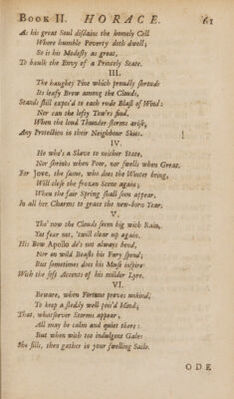 BOOK II. HORACE. 61
As his great Soul disdains the homely Cell
Where humble Poverty doth dwell;
So is his Modesty as great,
To baulk the Envy of a Princely Seat.
III.
The haughty Pine which proudly shrouds
Its leafy Brow among the Clouds,
Stands still expos'd to each rude Blast of Wind:
Nor can the lofty Tow'rs find,
When the loud Thunder-storms arise,
Any Protection in their Neighbour Skies.
IV.
He who's a Slave to neither State,
Nor shrinks when Poor, nor swells when Great.
For Jove, the same, who does the Winter bring,
Will close the frozen Scene again;
When the fair Spring shall soon appear,
In all her Charms to grace the new-born Year.
V.
Tho' now the Clouds seem big with Rain,
Yet fear not, 'twill clear up again.
His Bow Apollo do's not always bend,
Nor on wild Beasts his Fury spend;
But sometimes does his Muse inspire
With the soft Accents of his milder Lyre.
VI.
Beware, when Fortune proves unkind,
To keep a steddy well pois'd Mind;
That, whatsoever Storms appear,
All may be calm and quiet there:
But when with too indulgent Gales
She fills, then gather in your swelling Sails.
ODE